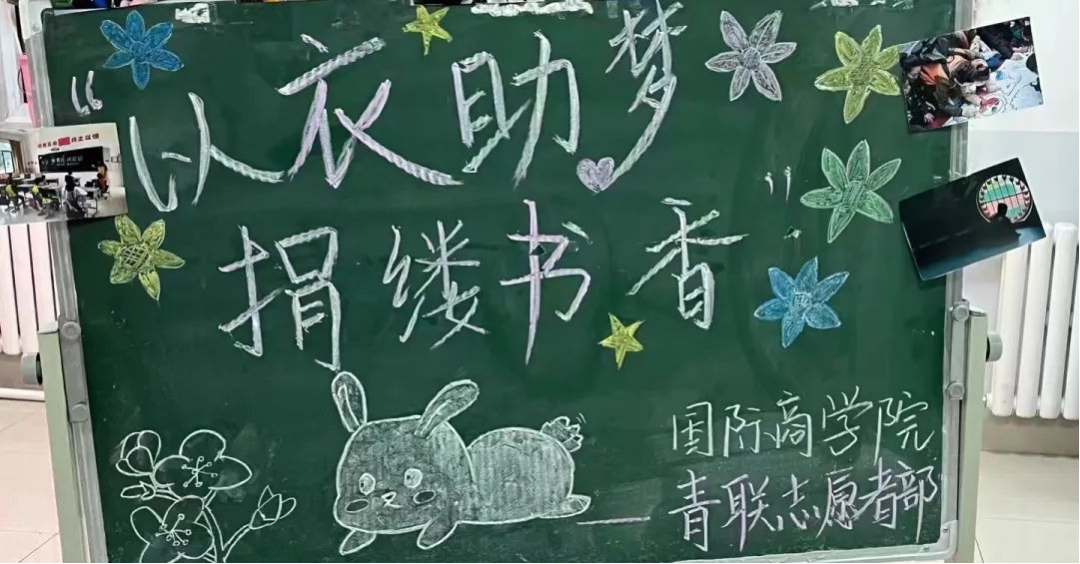 “以衣助梦
捐缕书香”
国际商学院
——青联志愿者部